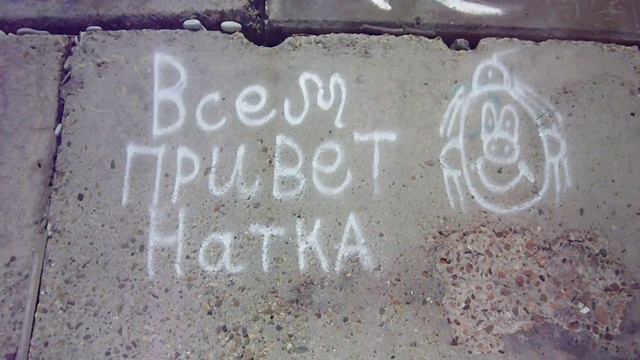 Всем
привет
Натка